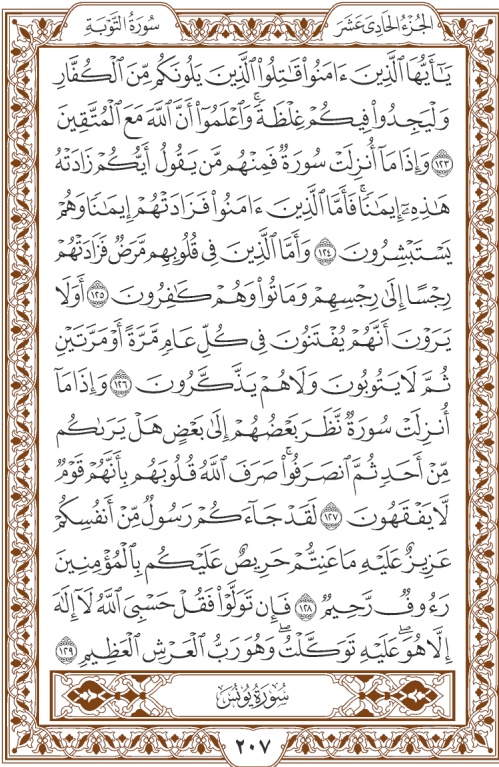 الجُزْءُ الحَادِي عَشَرَ
سُورَةُ التَّوْبَةِ
يَـٰٓأَيُّهَا ٱلَّذِينَ ءَامَنُوا۟ قَـٰتِلُوا۟ ٱلَّذِينَ يَلُونَكُم مِّنَ ٱلْكُفَّارِ
وَلْيَجِدُوا۟ فِيكُمْ غِلْظَةًۚ وَٱعْلَمُوٓا۟ أَنَّ ٱللَّهَ مَعَ ٱلْمُتَّقِينَ
١٢٣ وَإِذَا مَآ أُنزِلَتْ سُورَةٌ فَمِنْهُم مَّن يَقُولُ أَيُّكُمْ زَادَتْهُ
هَـٰذِهِۦٓ إِيمَـٰنًاۚ فَأَمَّا ٱلَّذِينَ ءَامَنُوا۟ فَزَادَتْهُمْ إِيمَـٰنًا وَهُمْ
يَسْتَبْشِرُونَ ١٢٤ وَأَمَّا ٱلَّذِينَ فِى قُلُوبِهِم مَّرَضٌ فَزَادَتْهُمْ
رِجْسًا إِلَىٰ رِجْسِهِمْ وَمَاتُوا۟ وَهُمْ كَـٰفِرُونَ ١٢٥ أَوَلَا
يَرَوْنَ أَنَّهُمْ يُفْتَنُونَ فِى كُلِّ عَامٍ مَّرَّةً أَوْ مَرَّتَيْنِ
ثُمَّ لَا يَتُوبُونَ وَلَا هُمْ يَذَّكَّرُونَ ١٢٦ وَإِذَا مَآ
أُنزِلَتْ سُورَةٌ نَّظَرَ بَعْضُهُمْ إِلَىٰ بَعْضٍ هَلْ يَرَىٰكُم
مِّنْ أَحَدٍ ثُمَّ ٱنصَرَفُوا۟ۚ صَرَفَ ٱللَّهُ قُلُوبَهُم بِأَنَّهُمْ قَوْمٌ
لَّا يَفْقَهُونَ ١٢٧ لَقَدْ جَآءَكُمْ رَسُولٌ مِّنْ أَنفُسِكُمْ
عَزِيزٌ عَلَيْهِ مَا عَنِتُّمْ حَرِيصٌ عَلَيْكُم بِٱلْمُؤْمِنِينَ
رَءُوفٌ رَّحِيمٌ ١٢٨ فَإِن تَوَلَّوْا۟ فَقُلْ حَسْبِىَ ٱللَّهُ لَآ إِلَـٰهَ
إِلَّا هُوَۖ عَلَيْهِ تَوَكَّلْتُۖ وَهُوَ رَبُّ ٱلْعَرْشِ ٱلْعَظِيمِ ١٢٩
سُورَةُ يُونُسَ
٢٠٧